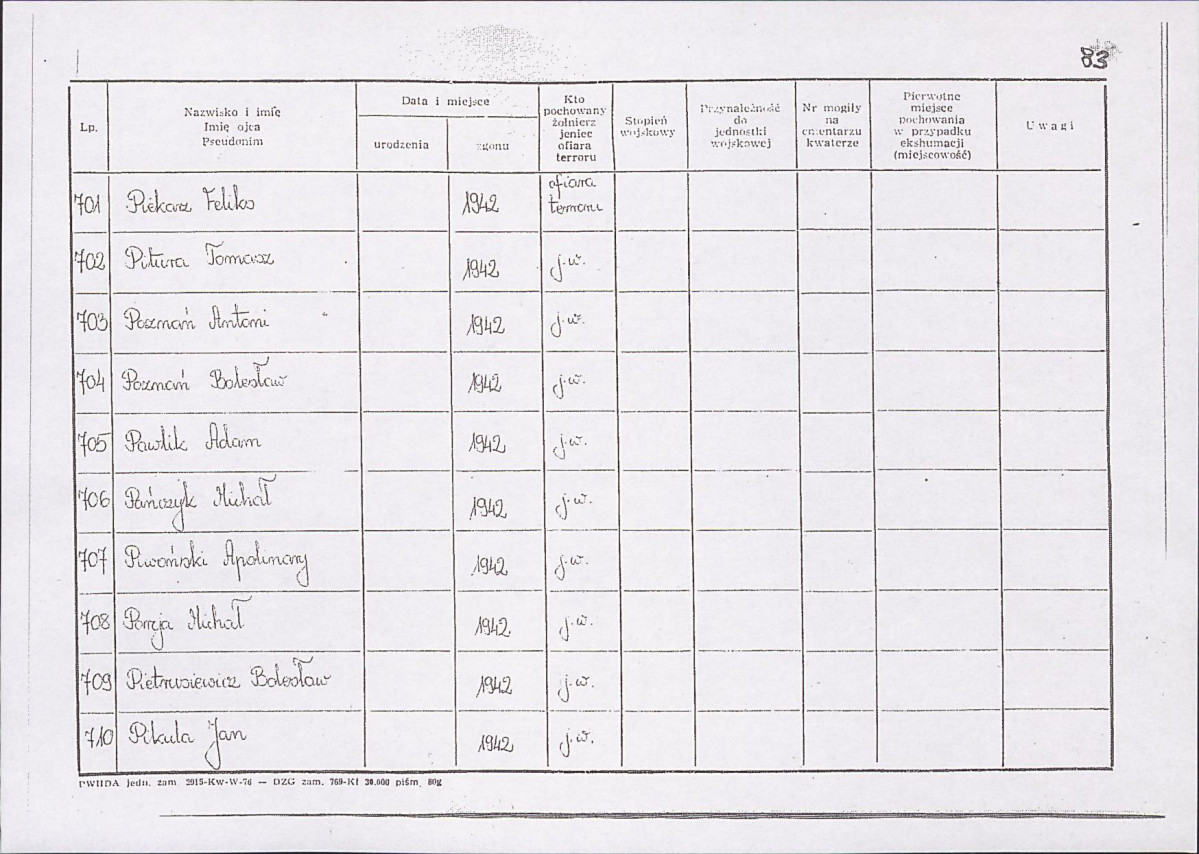 83
Lp.
Nazwisko i imię
Imię ojca
Pseudonim
Data i miejsce
urodzenia
zgonu
Kto
pochowany
żołnierz
jeniec
ofiara
terroru
Stopień
wojskowy
Przynależność
do
jednostki
wojskowej
Nr mogiły
na
cmentarzu
kwaterze
Pierwotne
miejsce
pochowania
w przypadku
ekshumacji
(miejscowość)
Uwagi
701 Piekarz Feliks 1942 ofiara
terroru
702 Pitura Tomasz 1942 j.w.
703 Poszmań Antoni 1942 j.w.
704 Pozmań Bolesław 1942 j.w.
705 Pawlik Adam 1942 j.w.
706 Pańczyk Michał 1942 j.w.
707 Piwoński Apolinary 1942 j.w.
708 Michał 1942 j.w.
709 Pietrusiewicz Bolesław 1942 j.w.
710 Pikula Jan 1942 j.w.
PWIIDA jedn. zam. 2915-Kw-W-76 — DZG zam. 769-KI 30.000 piśm. 80g